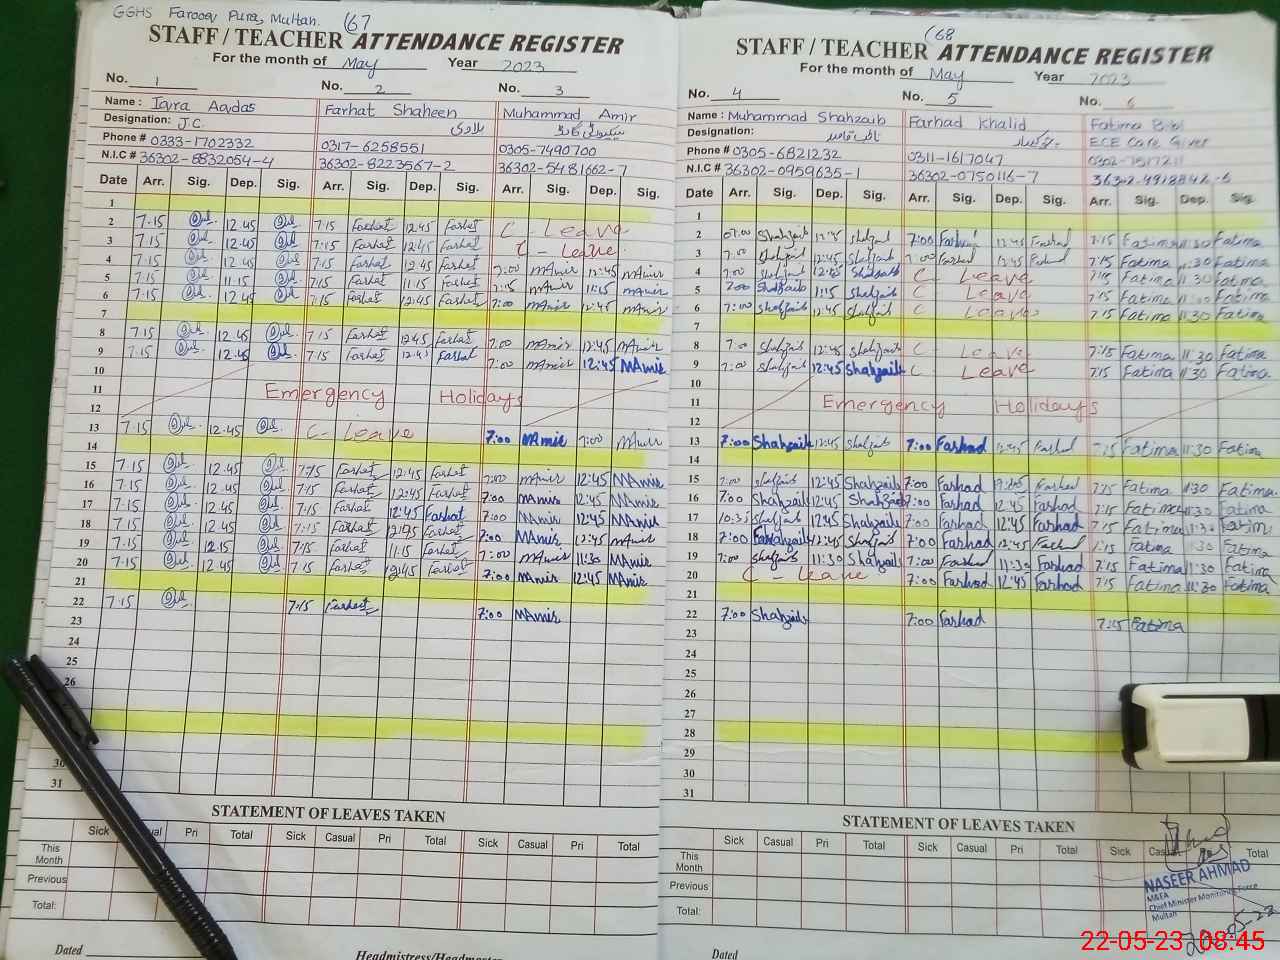 GGHS Farooq Pura, Multan. (67
STAFF / TEACHER ATTENDANCE REGISTER
For the month of May Year 2023
No. 1 No. 2 No. 3
Name : Iqra Aqdas Farhat Shaheen Muhammad Amir
Designation: J.C.
Phone # 0333-1702332 0317-6258551 0305-7490700
N.I.C # 36302-8832054-4 36302-8223567-2 36302-5481662-7
Date Arr. Sig. Dep. Sig. Arr. Sig. Dep. Sig. Arr. Sig. Dep. Sig.
1
2 7:15 12.45 7:15 Farhat 12:45 Farhat C - Leave
3 7.15 12.45 7:15 Farhat 12:45 Farhat C - Leave
4 7.15 12.45 7:15 Farhat 12:45 Farhat 7:00 MAmir 12:45 MAmir
5 7.15 11.15 7:15 Farhat 11:15 Farhat 7:15 MAmir 11:15 MAmir
6 7.15 12.45 7:15 Farhat 12:45 Farhat 7:00 MAmir 12:45 MAmir
7
8 7.15 12.45 7:15 Farhat 12:45 Farhat 7:00 MAmir 12:45 MAmir
9 7.15 12.45 7:15 Farhat 12:45 Farhat 7:00 MAmir 12:45 MAmir
10
11 Emergency Holidays
12
13 7.15 12.45 C - Leave 7:00 MAmir 7:00 MAmir
14
15 7.15 12.45 7:15 Farhat 12:45 Farhat 7:00 MAmir 12:45 MAmir
16 7.15 12.45 7:15 Farhat 12:45 Farhat 7:00 MAmir 12:45 MAmir
17 7.15 12.45 7:15 Farhat 12:45 Farhat 7:00 MAmir 12:45 MAmir
18 7.15 12.45 7:15 Farhat 12:45 Farhat 7:00 MAmir 12:45 MAmir
19 7.15 12.15 7:15 Farhat 11:15 Farhat 7:00 MAmir 11:30 MAmir
20 7.15 12.45 7:15 Farhat 12:45 Farhat 7:00 MAmir 12:45 MAmir
21
22 7:15 7:15 Farhat 7:00 MAmir
23
24
25
26
30
31
STATEMENT OF LEAVES TAKEN
Sick Pri Total Sick Casual Pri Total Sick Casual Pri Total
This Month
Previous
Total:
Dated Headmistress/Headmaster
(68
STAFF / TEACHER ATTENDANCE REGISTER
For the month of May Year 2023
No. 4 No. 5 No. 6
Name : Muhammad Shahzaib Farhad Khalid Fatima Bibi
Designation: ECE Care Giver
Phone # 0305-6821232 0311-1617047
N.I.C # 36302-0959635-1 36302-0750116-7
Date Arr. Sig. Dep. Sig. Arr. Sig. Dep. Sig. Arr. Sig. Dep. Sig.
1
2 07:00 Shahzaib 12:45 Shahzaib 7:00 Farhad 12:45 Farhad 7:15 Fatima 11:30 Fatima
3 7:00 Shahzaib 12:45 Shahzaib 7:00 Farhad 12:45 Farhad 7:15 Fatima 11:30 Fatima
4 7:00 Shahzaib 12:45 Shahzaib C Leave 7:15 Fatima 11:30 Fatima
5 7:00 Shahzaib 1:15 Shahzaib C Leave 7:15 Fatima Fatima
6 7:00 Shahzaib 12:45 Shahzaib C Leave 7:15 Fatima 11:30 Fatima
7
8 7:00 Shahzaib 12:45 Shahzaib C Leave 7:15 Fatima 11:30 Fatima
9 7:00 Shahzaib 12:45 Shahzaib C Leave 7:15 Fatima 11:30 Fatima
10
11 Emergency Holidays
12
13 7:00 Shahzaib 12:45 Shahzaib 7:00 Farhad 12:45 Farhad 7:15 Fatima 11:30 Fatima
14
15 7:00 Shahzaib 12:45 Shahzaib 7:00 Farhad 12:45 Farhad 7:15 Fatima 11:30 Fatima
16 7:00 Shahzaib 12:45 Shahzaib 7:00 Farhad 12:45 Farhad 7:15 Fatima 11:30 Fatima
17 Shahzaib 12:45 Shahzaib 7:00 Farhad 12:45 Farhad 7:15 Fatima 11:30 Fatima
18 7:00 Shahzaib 12:45 Shahzaib 7:00 Farhad 12:45 Farhad 7:15 Fatima 11:30 Fatima
19 7:00 Shahzaib 11:30 Shahzaib 7:00 Farhad 11:30 Farhad 7:15 Fatima 11:30 Fatima
20 C - Leave 7:00 Farhad 12:45 Farhad 7:15 Fatima 11:30 Fatima
21
22 7:00 Shahzaib 7:00 Farhad 7:15 Fatima
23
24
25
26
27
28
29
30
31
STATEMENT OF LEAVES TAKEN
Sick Casual Pri Total Sick Casual Pri Total Sick Total
This Month
Previous
Total:
NASEER AHMAD
MAEA
Chief Minister Monitoring Force
Multan
Dated
22-05-23 08:45